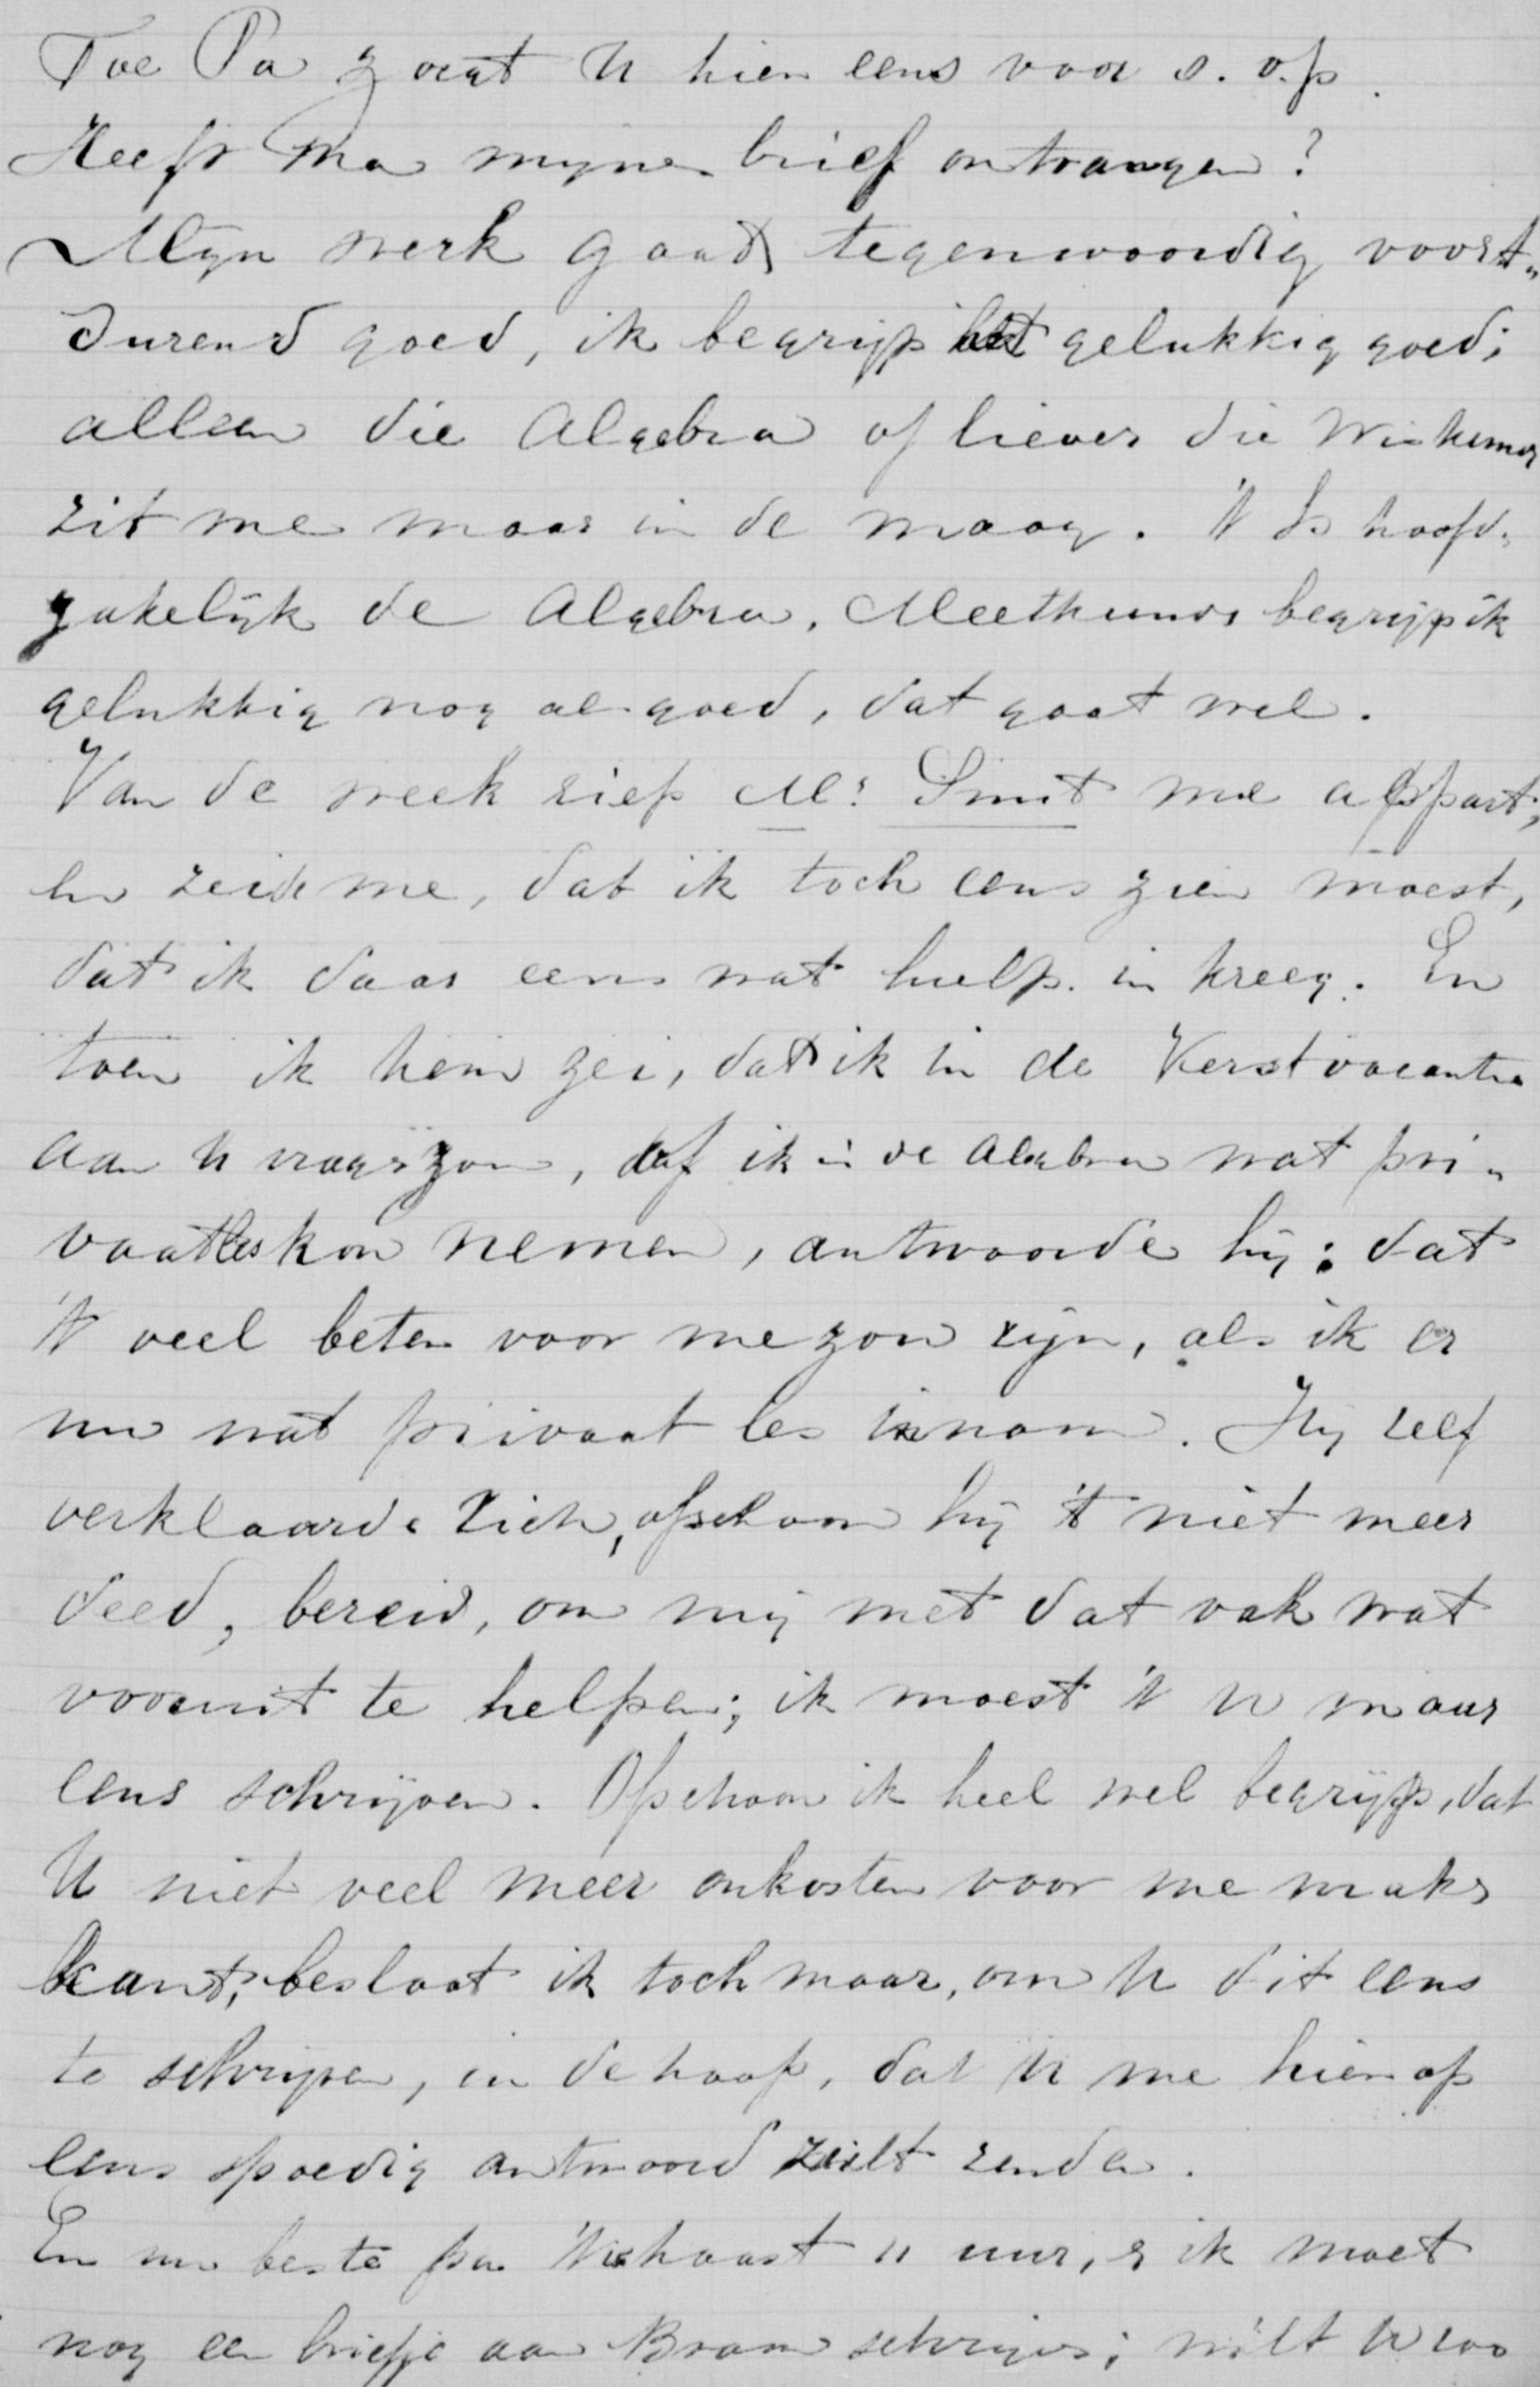 Toe Pa zorgt U hier eens voor s.v.p.
Heeft Ma mijnen brief ontvangen?
Mijn werk gaat tegenwoordig voort„
durend goed, ik begrijp het gelukkig goed;
alleen die Algebra of liever die Wiskunde
zit me maar in de maag. 't Is hoofd„
zakelijk de Algebra, Meetkunde begrijp ik
gelukkig nog al goed, dat gaat wel.
Van de week riep Mr Smit me appart,
en zeide me, dat ik toch eens zien moest,
dat ik daar eens wat hulp in kreeg. En
toen ik hem zei, dat ik in de Kerstvacantie
aan U vragen zou, of ik in de Algebra wat pri„
vaatles kon nemen, antwoorde hij: dat
't veel beter voor me zou zijn, als ik er
nu wat privaat les in nam. Hij zelf
verklaarde zich, ofschoon hij 't niet meer
deed, bereid, om mij met dat vak wat
vooruit te helpen; ik moest 't U maar
eens schrijven. Ofschoon ik heel wel begrijp, dat
U niet veel meer onkosten voor me maken
kunt, besloot ik toch maar, om U dit eens
te schrijven, in de hoop, dat U me hier op
eens spoedig antwoord zult zenden.
En nu beste pa 't is haast 11 uur, & ik moet
nog een briefje aan Bram schrijven; wilt U zoo